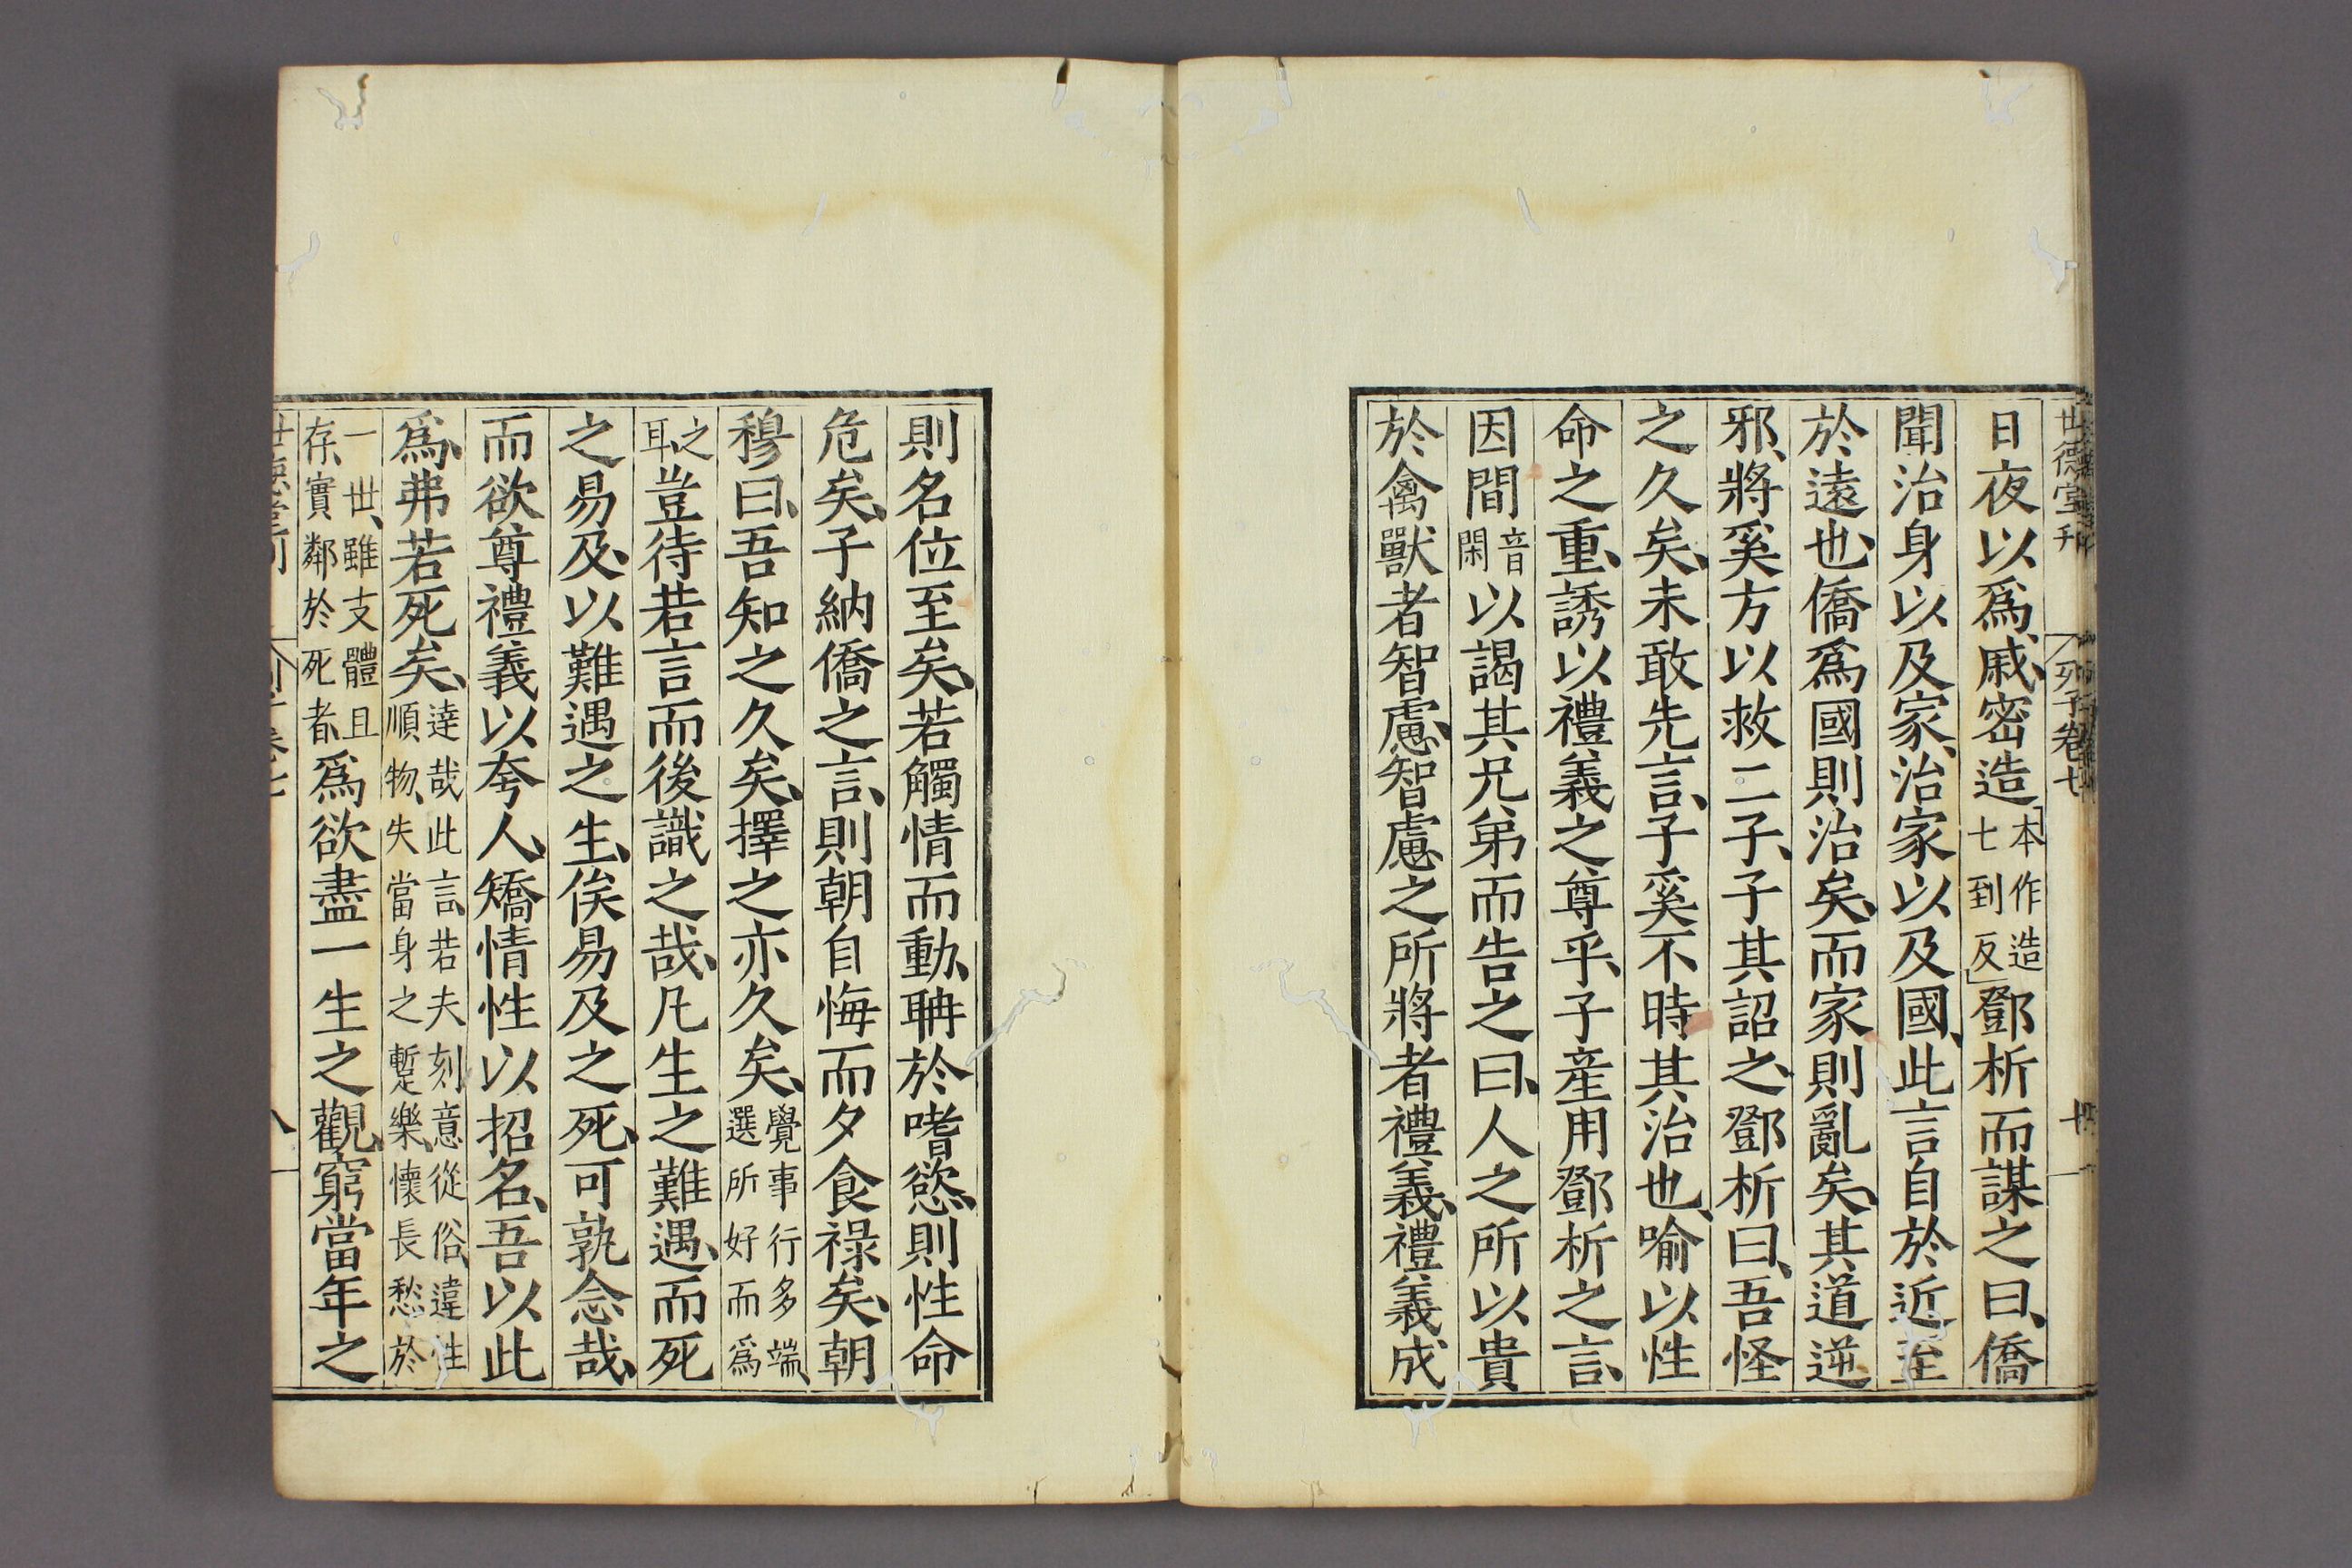 世德堂刊 列子卷七 十
日夜以爲戚、密造本作造七到反鄧析而謀之曰、僑
聞治身以及家、治家以及國、此言自於近至
於遠也、僑爲國則治矣、而家則亂矣、其道逆
邪、將奚方以救二子、子其詔之、鄧析曰、吾怪
之久矣、未敢先言、子奚不時其治也、喻以性
命之重、誘以禮義之尊乎、子產用鄧析之言、
因間音閑以謁其兄弟而告之曰、人之所以貴
於禽獸者智慮、智慮之所將者禮義、禮義成
則名位至矣、若觸情而動、聃於嗜慾、則性命
危矣、子納僑之言、則朝自悔而夕食祿矣、朝
穆曰、吾知之久矣、擇之亦久矣、覺事行多端、選所好而爲
之耳、豈待若言而後識之哉、凡生之難遇、而死
之易及、以難遇之生、俟易及之死、可孰念哉、
而欲尊禮義以夸人、矯情性以招名、吾以此
爲、弗若死矣、達哉此言、若夫刻意從俗、違性順物、失當身之暫樂、懷長愁於
一世、雖支體且存、實鄰於死者、爲欲盡一生之觀、窮當年之